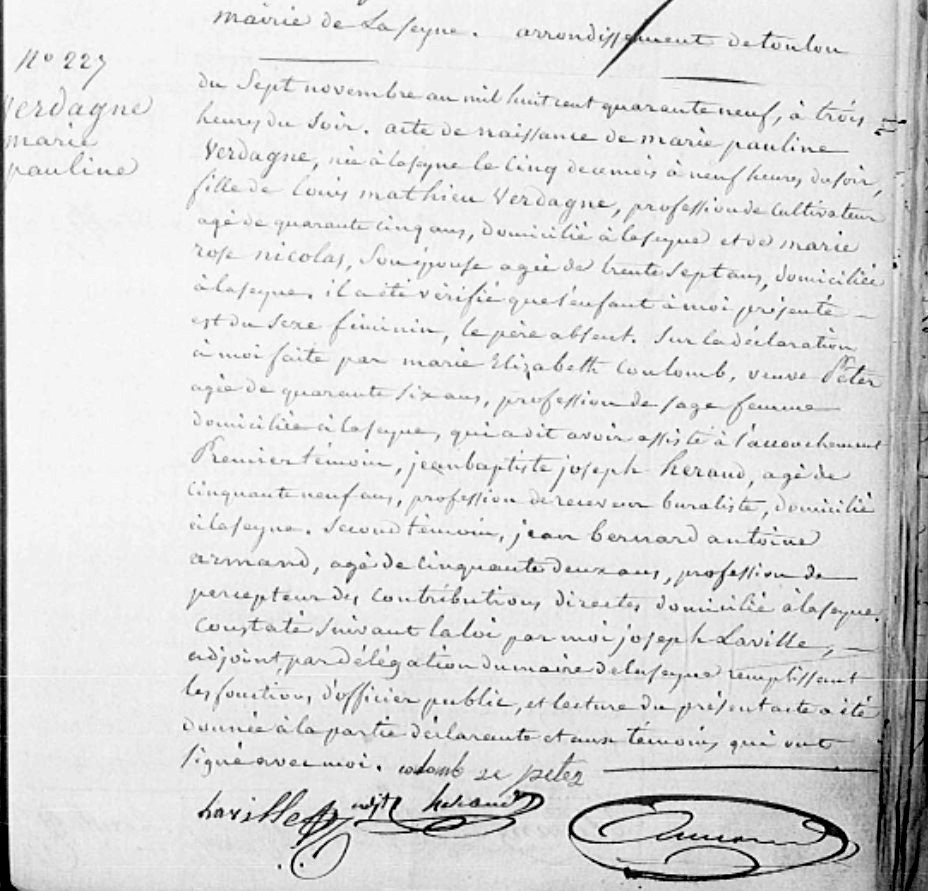 mairie de Laseyne. arrondissement detoulon
No 227
Verdagne
marie
pauline
du Sept novembre au mil huit cent quarante neuf, à trois
heures du soir. acte de naissance de marie pauline
Verdagne, née à laseyne le cinq de ce mois à neuf heures du soir,
fille de louis mathieu Verdagne, profession de cultivateur
agé de quarante cinq ans, domicilié à laseyne et de marie
rose nicolas, son épouse agée de trente sept ans, domiciliée
à laseyne. il a été vérifié que l'enfant à moi présenté
est du sexe féminin, le père absent. Sur la déclaration
à moi faite par marie Elizabeth Coulomb, veuve Péter
agée de quarante six ans, profession de sage femme
domiciliée à laseyne, qui a dit avoir assisté à l'accouchement
Premier témoin, jean baptiste joseph heraud, agé de
cinquante neuf ans, profession de receveur buraliste, domicilié
à laseyne. Second témoin, jean bernard antoine
armand, agé de cinquante deux ans, profession de
percepteur des contributions directes domicilié à laseyne.
Constaté suivant la loi par moi joseph Laville,
adjoint, par délégation du maire de laseyne remplissant
les fonctions d'officier public, et lecture du présent acte a été
donnée à la partie déclarante et aux témoins qui ont
signé avec moi. colomb ve peter
Laville adjt heraud
Armand